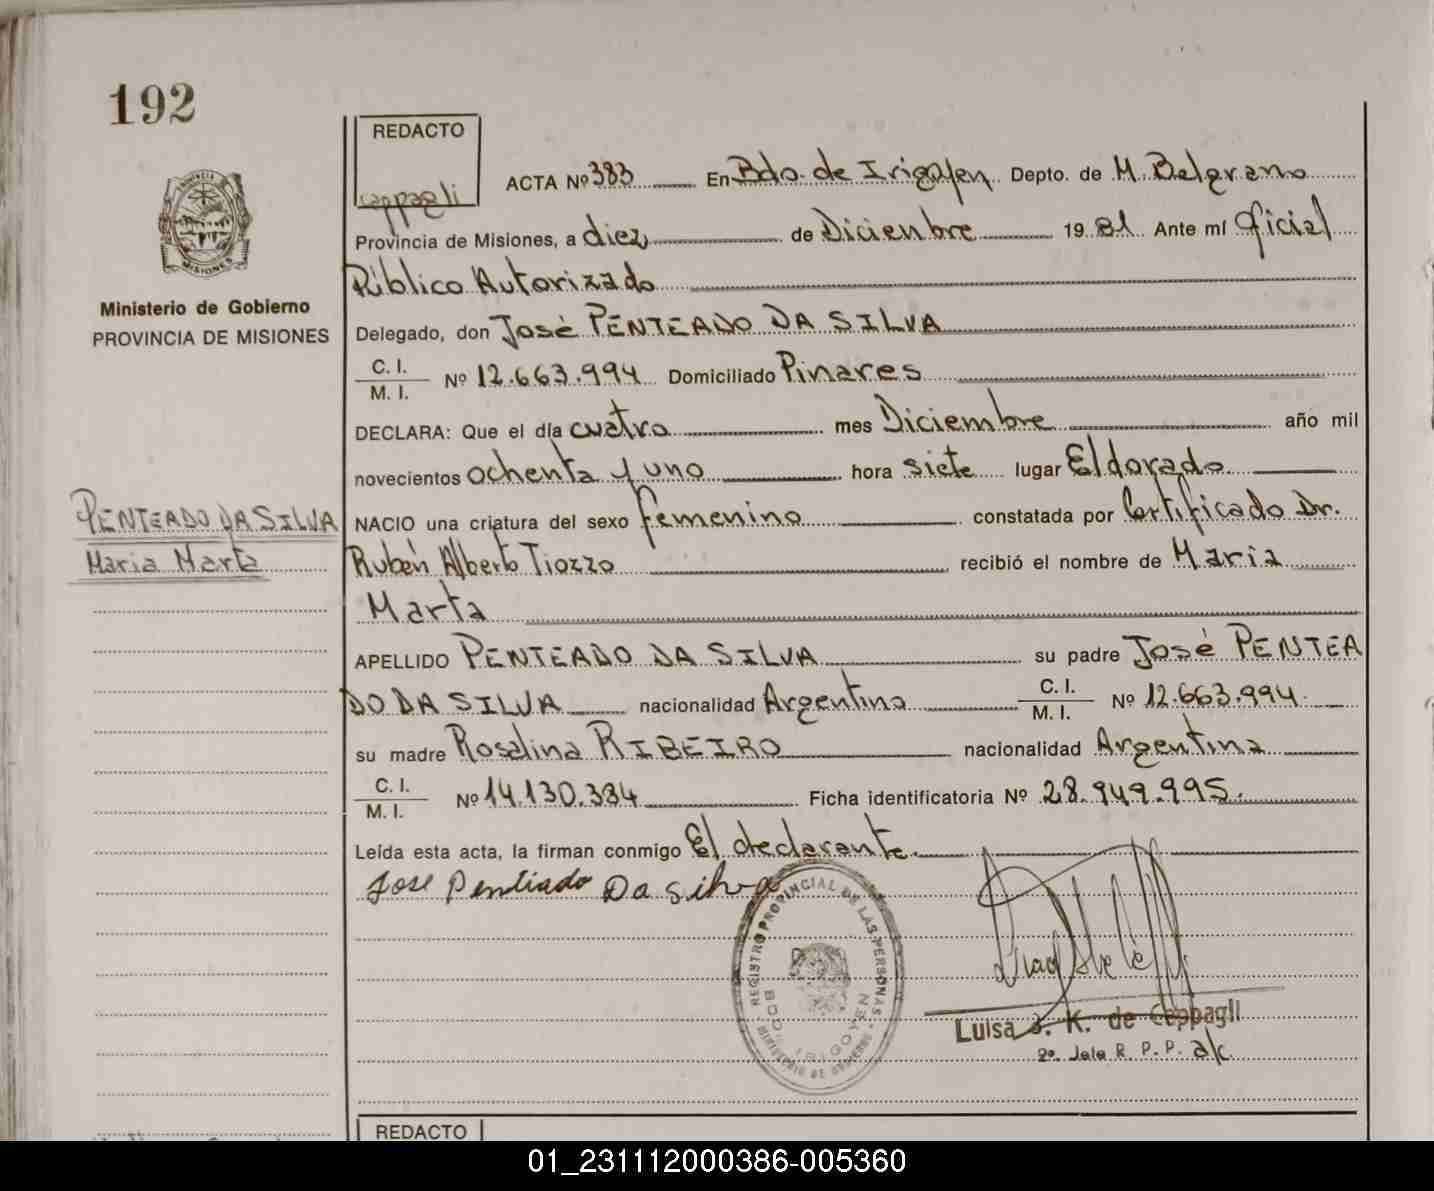 192
REDACTO
cappagli
ACTA Nº 383 En Bdo. de Irigoyen Depto. de M. Belgrano
Provincia de Misiones, a diez de Dicienbre 1981 Ante mí Oficial
Público Autorizado
PROVINCIA
MISIONES
Ministerio de Gobierno
PROVINCIA DE MISIONES
Delegado, don José PENTEADO DA SILVA
C. I.
M. I. Nº 12.663.994 Domiciliado Pinares
DECLARA: Que el día cuatro mes Diciembre año mil
novecientos ochenta y uno hora siete lugar Eldorado
PENTEADO DA SILVA
Maria Marta
NACIO una criatura del sexo femenino constatada por Certificado Dr.
Rubén Alberto Tiozzo recibió el nombre de Maria
Marta
APELLIDO PENTEADO DA SILVA su padre José PENTEA
DO DA SILVA nacionalidad Argentino C. I. M. I. Nº 12.663.994
su madre Rosalina RIBEIRO nacionalidad Argentina
C. I.
M. I. Nº 14.130.334 Ficha identificatoria Nº 28.949.995.
Leída esta acta, la firman conmigo El declarante.
Jose Pentiado Da Silva
REGISTRO PROVINCIAL DE LAS PERSONAS
BDO. IRIGOYEN
MINISTERIO DE GOBIERNO
Luisa J. K. de Cappagli
2º. Jefe R. P. P. a/c
REDACTO
01_231112000386-005360